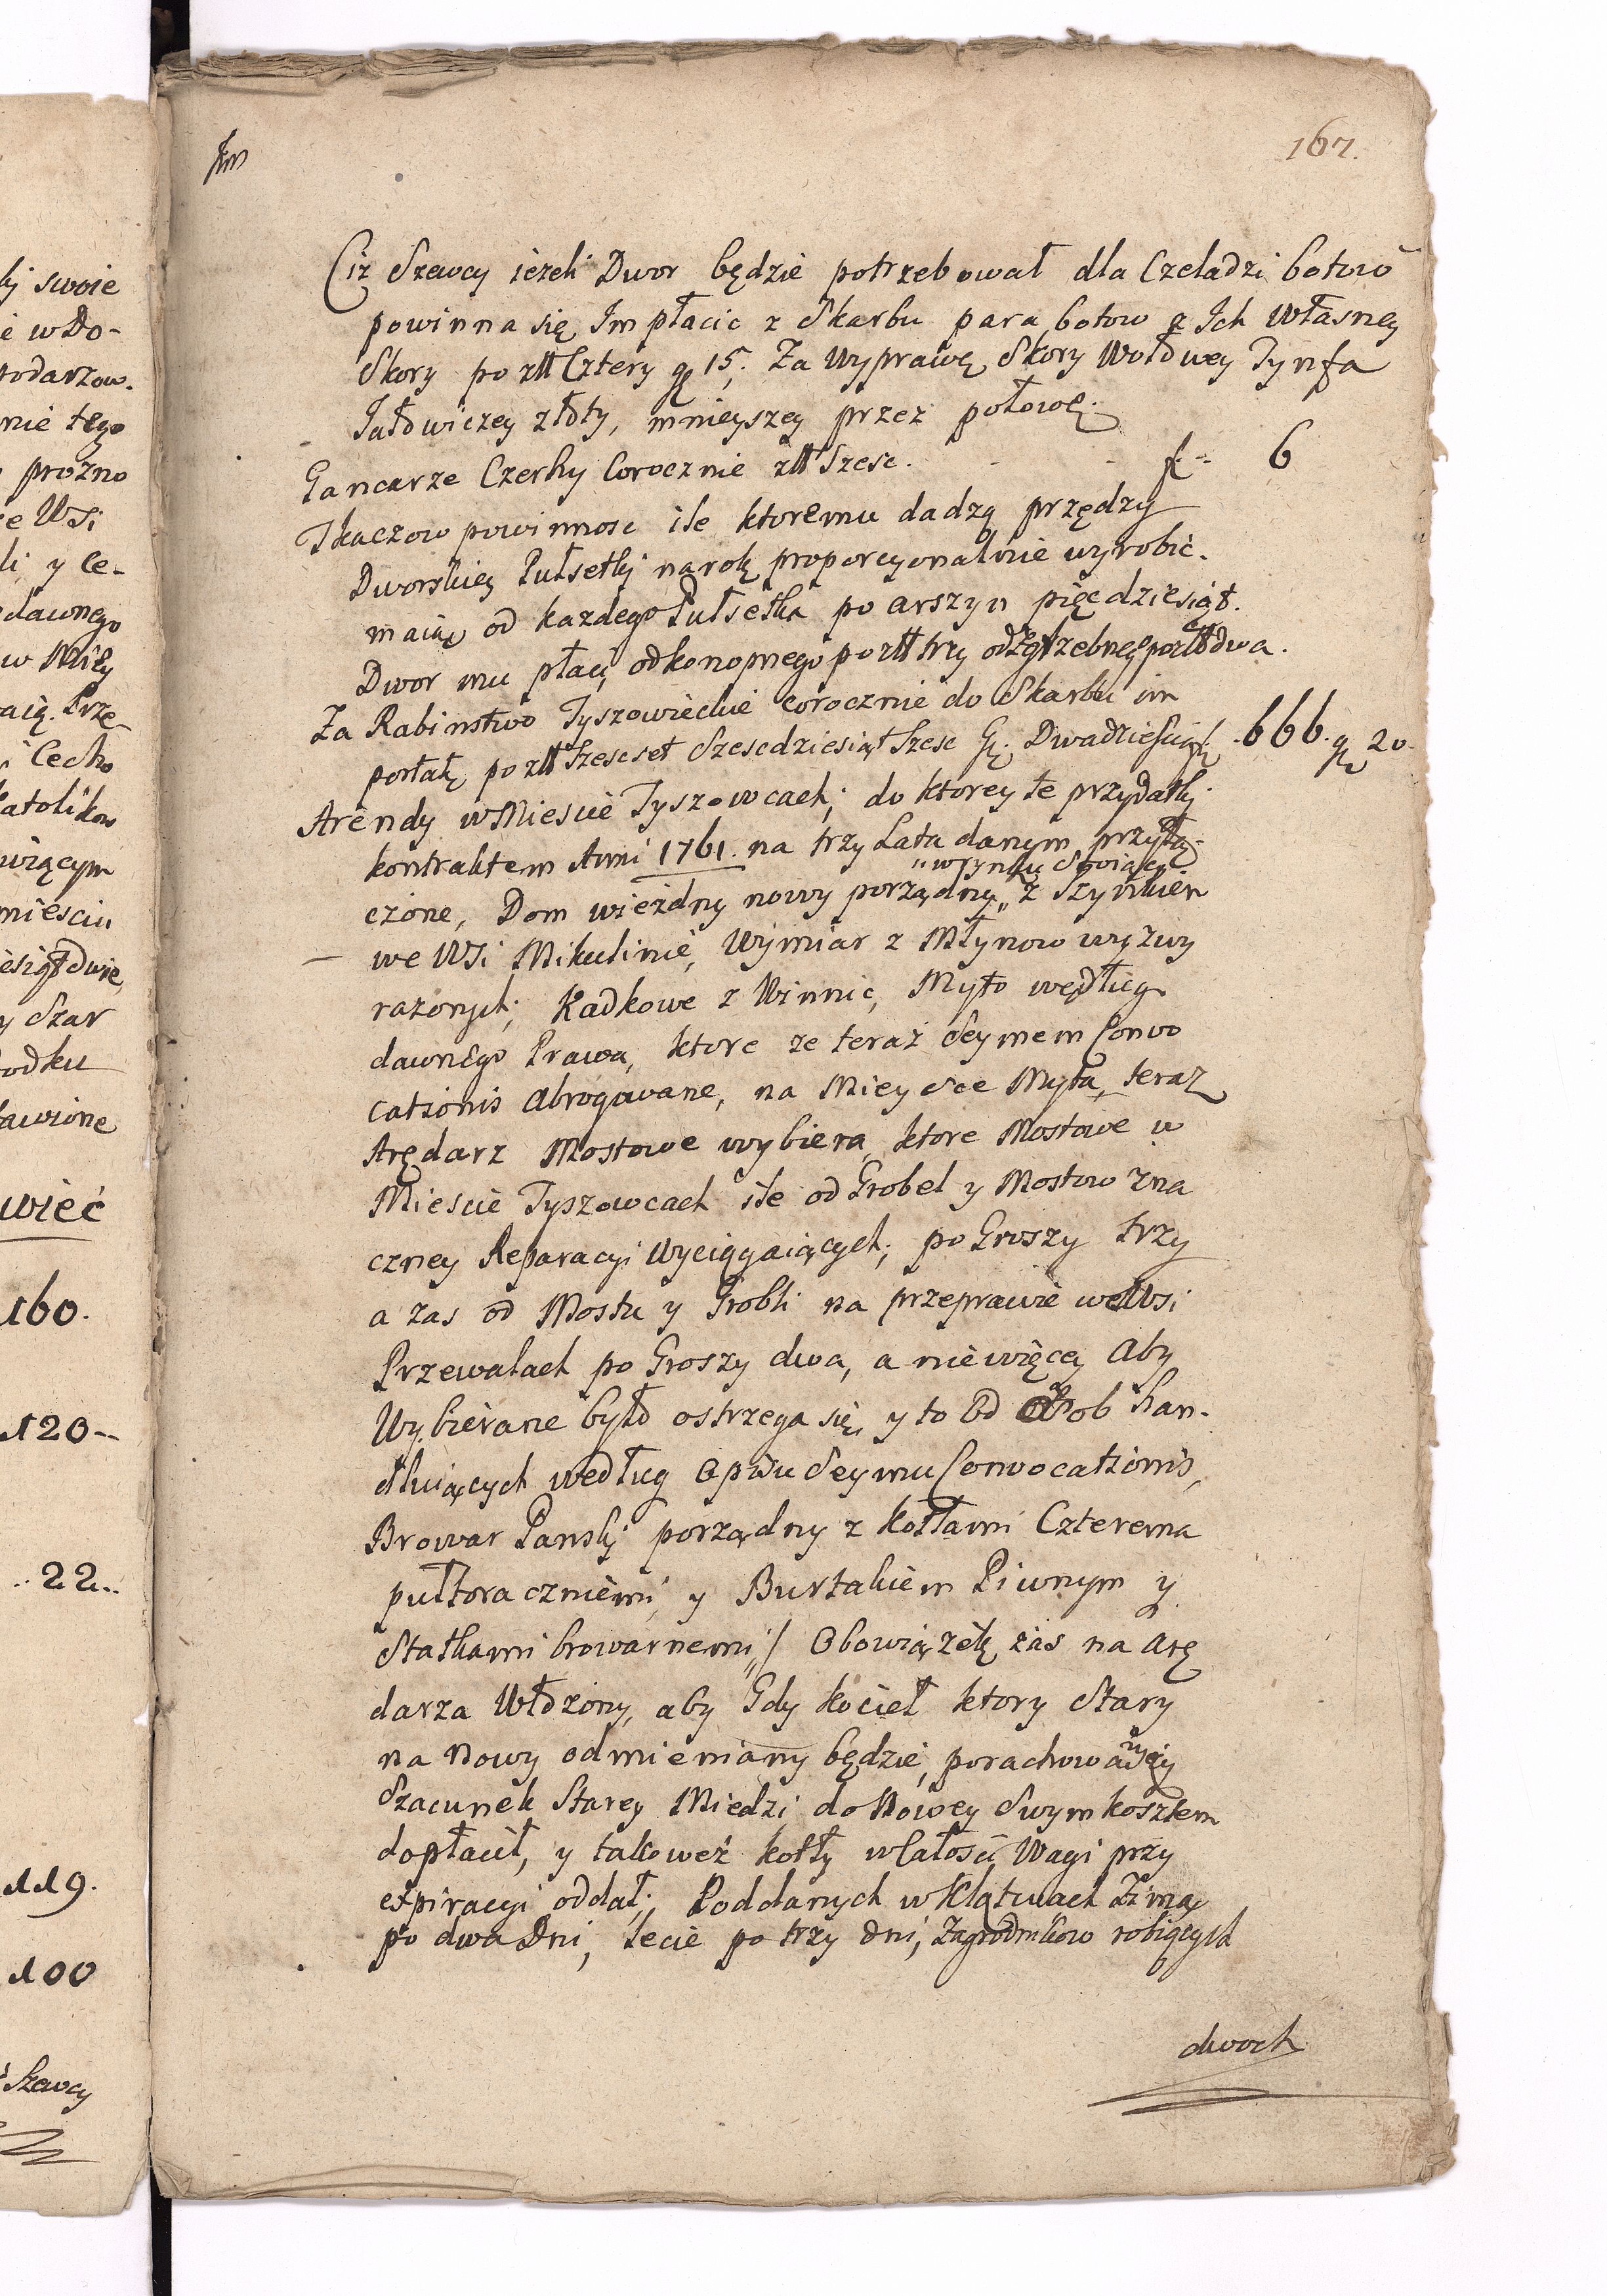 ły swoie
ie w Do-
podarzow.
nie tego
prozno
ze Wsi
li y Ce-
dawnego
w Mily
aią. Prze
Cecho
Katolikow
wiącym
miesciu
iesiąt dwie
y Szar
rodku
tawione
wieć
160.
120--
..22..
119.
100
Szewcy
167.
Ciz Szewcy ieżeli Dwor będzie potrzebował dla Czeladzi botow
powinna się Im płacic z Skarbu para botow z Ich własney
Skory po zlł Cztery gr 15. Za Wyprawę Skory Wołowey Tynfa
Jałowiczey złoty, mnieyszey przez połowę.
Gancarze Czerhy Corocznie zlł Szesc. - - f-- 6
Tkaczow powinnosc ile ktoremu dadzą przędzy
Dworskiey Pułsetki na rok proporcyonalnie wyrobić.
maią od kazdego Pułsetka po arszyn pięcdziesiąt.
Dwor mu płaci od konopnego po zlł trzy od Zgrzebnego po zlł dwa.
Za Rabinstwo Tyszowieckie corocznie do Skarbu im
portatę po zlł Szescset Szescdziesiąt Szesc Gr. Dwadziescia f. 666. gr 20.
Arendy w Miescie Tyszowcach; do ktorey te przydatki
kontraktem Anni 1761. na trzy Lata danym przyłą-
„w rynku stoiący
czone, Dom wieżdny nowy porządny„ z Szynkiem
we Wsi Mikulinie, Wymiar z Młynow wyżwy
rażonych; Kadkowe z Winnic, Myto według
dawnego Prawa, ktore ze teraz Seymem Convo
cationis abrogowane, na Mieysce Myta, teraz
Arędarz Mostowe wybiera, ktore Mostowe w
Miescie Tyszowcach ile od Grobel y Mostow zna
czney Reparacyi wyciągaiących; po Groszy trzy
a zas od Mostu y Grobli na przeprawie we Wsi
Przewalach po Groszy dwa, a niewięcey aby
Wybierane było ostrzega się, y to od Osob han-
dluiących według opisu Seymu Convocationis,
Browar Panski porządny z kotłami Czterema
pułtoracznemi, y Burtakiem Piwnym y
Statkami browarnemi„/ Obowiązek zas na Arę
darza Włożony, aby Gdy kocieł ktory Stary
na nowy odmieniany będzie, porachowawszy
Szacunek Starey Miedzi do Nowey swym kosztem
dopłacił, y takoweż kotły w Całosci Wagi przy
expiracyi oddał; Poddanych w Klątwach Zimą
po dwa Dni, lecie po trzy dni, Zagrodnikow robiących
dwoch